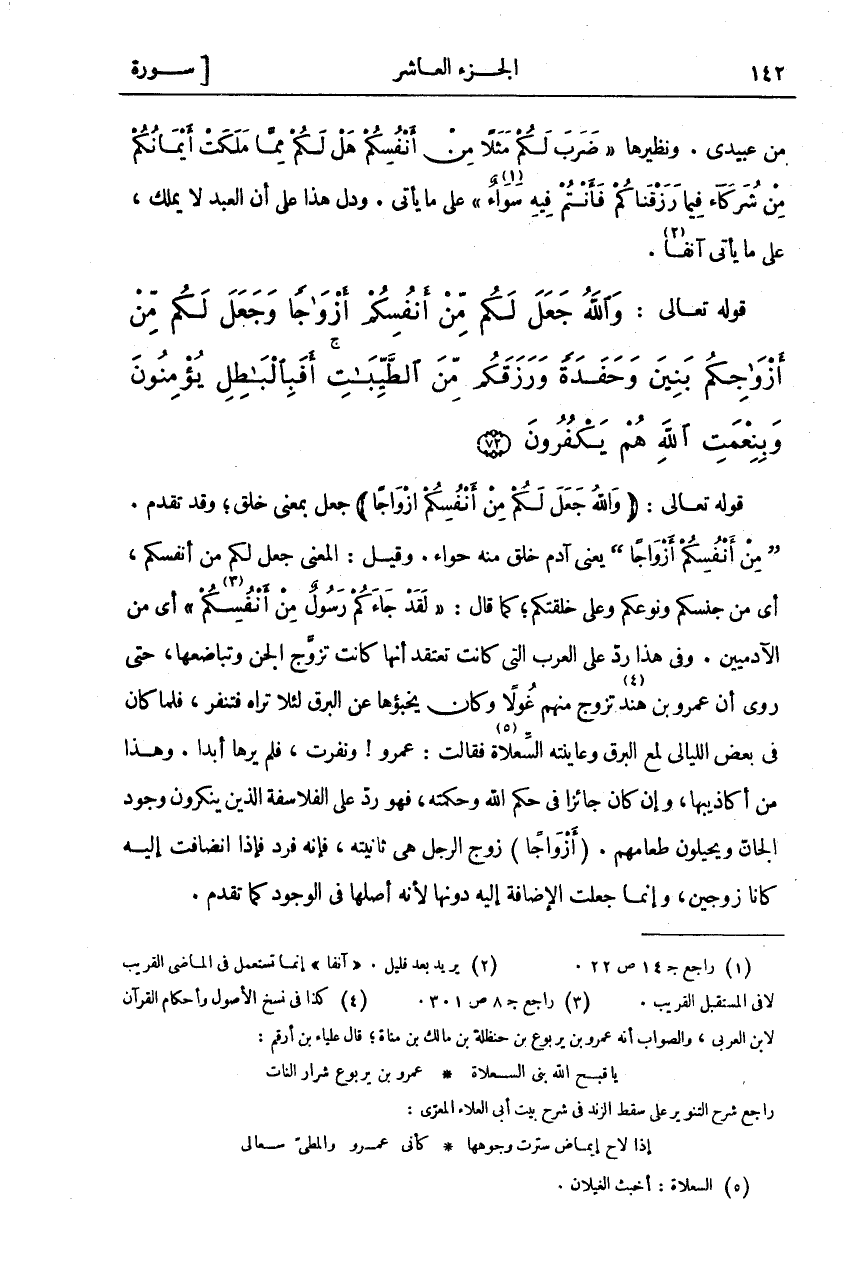 ١٤٢ الجـــزء العـاشر [ ســـورة
من عبيدى . ونظيرها « ضَرَبَ لَـكُمْ مَثَلًا مِنْ أَنْفُسِكُمْ هَلْ لَـكُمْ مِمَّا مَلَكَتْ أَيْمَانُكُمْ
مِنْ شُرَكَاءَ فِيمَا رَزَقْنَاكُمْ فَأَنْتُمْ فِيهِ سَوَاءٌ(١) » على ما يأتى . ودل هذا على أن العبد لا يملك ،
على ما يأتى آنفـا(٢) .
قوله تعـالى : وَٱللَّهُ جَعَلَ لَـكُم مِّنْ أَنفُسِكُمْ أَزْوَٰجًا وَجَعَلَ لَـكُم مِّنْ
أَزْوَٰجِكُم بَنِينَ وَحَفَـدَةً وَرَزَقَكُم مِّنَ ٱلطَّيِّبَـٰتِ ۚ أَفَبِٱلْبَـٰطِلِ يُؤْمِنُونَ
وَبِنِعْمَتِ ٱللَّهِ هُمْ يَـكْفُرُونَ ﴿٧٢﴾
قوله تعـالى : ﴿ وَاللهُ جَعَلَ لَـكُمْ مِنْ أَنْفُسِكُمْ ازْوَاجًا ﴾ جعل بمعنى خلق؛ وقد تقدم .
” مِنْ أَنْفُسِكُمْ أَزْوَاجًا “ يعنى آدم خلق منه حواء . وقيـل : المعنى جعل لكم من أنفسكم ،
أى من جنسكم ونوعكم وعلى خلقتكم؛ كما قال : « لَقَدْ جَاءَكُمْ رَسُولٌ مِنْ أَنْفُسِـكُمْ(٣) » أى من
الآدميين . وفى هذا ردّ على العرب التى كانت تعتقد أنها كانت تزوَّج الجن وتباضعها، حتى
روى أن عمرو بن هند(٤) تزوج منهم غُولًا وكان يخبؤها عن البرق لئلا تراه فتنفر ، فلما كان
فى بعض الليالى لمع البرق وعاينته السِّعلاة(٥) فقالت : عمرو ! ونفرت ، فلم يرها أبدا . وهـذا
من أكاذيبها، وإن كان جائزا فى حكم الله وحكمته، فهو ردّ على الفلاسفة الذين ينكرون وجود
الجانّ ويحيلون طعامهم . ( أَزْوَاجًا ) زوج الرجل هى ثانيته ، فإنه فرد فإذا انضافت إليـه
كانا زوجين، وإنمـا جعلت الإضافة إليه دونها لأنه أصلها فى الوجود كما تقدم .
(١) راجع جـ ١٤ ص ٢٢ . (٢) يريد بعد قليل . « آنفا » إنمـا تستعمل فى المـاضى القريب
لا فى المستقبل القريب . (٣) راجع جـ ٨ ص ٣٠١ . (٤) كذا فى نسخ الأصول وأحكام القرآن
لابن العربى ، والصواب أنه عمرو بن يربوع بن حنظلة بن مالك بن مناة؛ قال علياء بن أرقم :
يا قبـح الله بنى السـعلاة * عمرو بن يربوع شرار النات
راجع شرح التنوير على سقط الزند فى شرح بيت أبى العلاء المعرّى :
إذا لاح إيمـاض سترت وجوهها * كأنى عمـرو والمطىّ سـعالى
(٥) السعلاة : أخبث الغيلان .